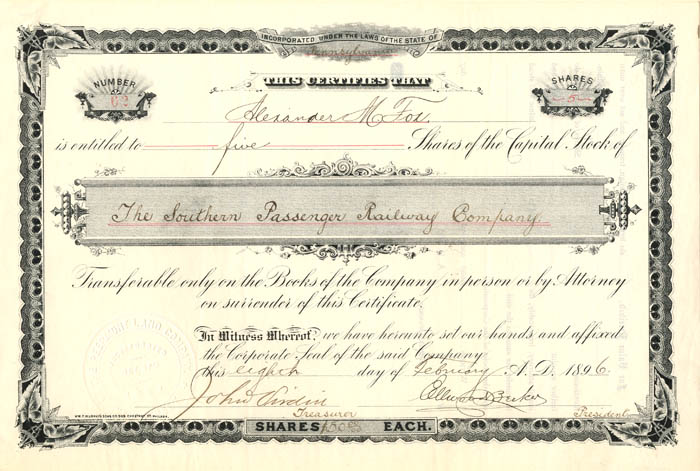 INCORPORATED UNDER THE LAWS OF THE STATE OF
Pennsylvania
THIS CERTIFIES THAT
NUMBER
62
SHARES
5
Alexander M Fox
is entitled to five Shares of the Capital Stock of
The Southern Passenger Railway Company.
Transferable only on the Books of the Company in person or by Attorney
on surrender of this Certificate.
In Witness Whereof, we have hereunto set our hands and affixed
the Corporate Seal of the said Company
this eighth day of February A.D. 1896.
John Virdin
Treasurer
President
SHARES $50.00 EACH.